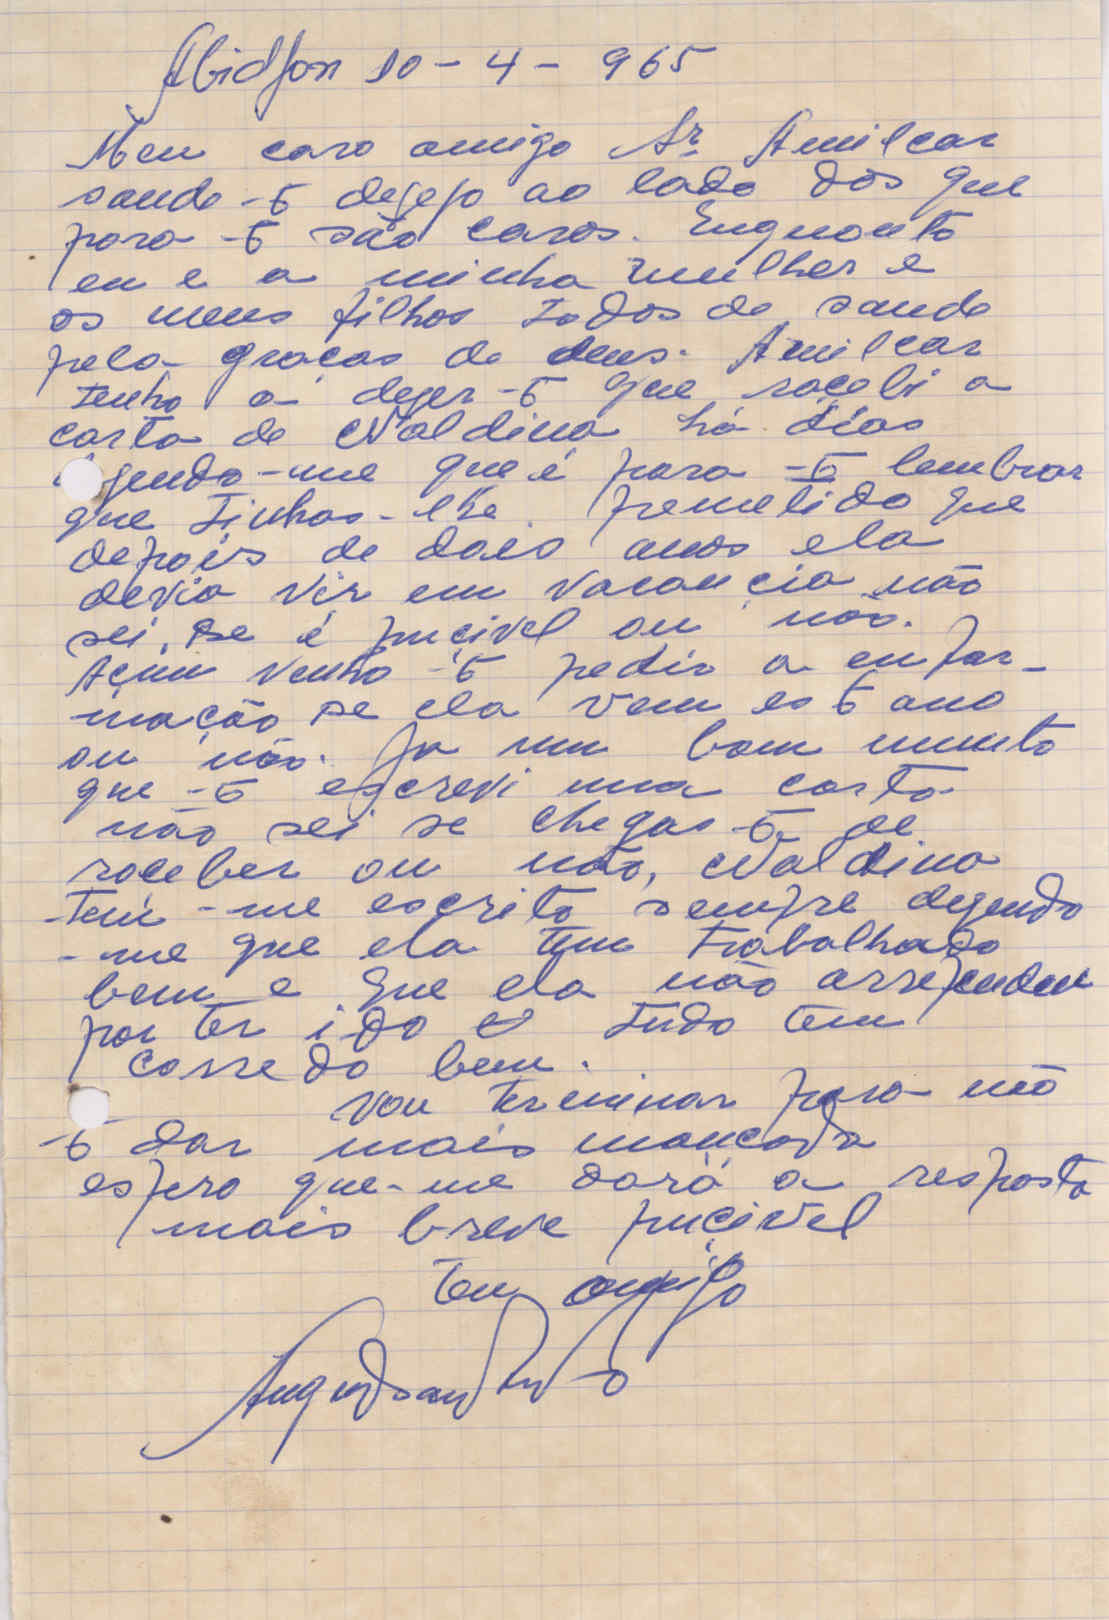 Abidjon 10-4-965
Meu caro amigo Sr. Amilcar
saude-te dejejo ao lado dos que
para-te são caros. Enquonto
eu e a minha mulher e
os meus filhos todos de saude
pela graças de deus. Amilcar
tenho a dejer-te que racebi a
carta de Naldina há dias
jendo-me que é para-te lembrar
que tinhas-lhe premetido que
depois de dois anos ela
devia vir em vacancia não
sei, se é puçivel ou não.
Açim venho-te pedir a enfor-
mação se ela vem este ano
ou não. Ja um bom muento
que-te escrevi uma carta
não sei se chegas-te de
raceber ou não, Naldina
tem-me escrito sempre dejendo
-me que ela tem trabalhado
bem e que ela não arrependeu
por ter ido e tudo tem
corredo bem.
Vou terminar para não
te dar mais mançada
espero que-me dará a resposta
mais breve puçivel
teu amigo